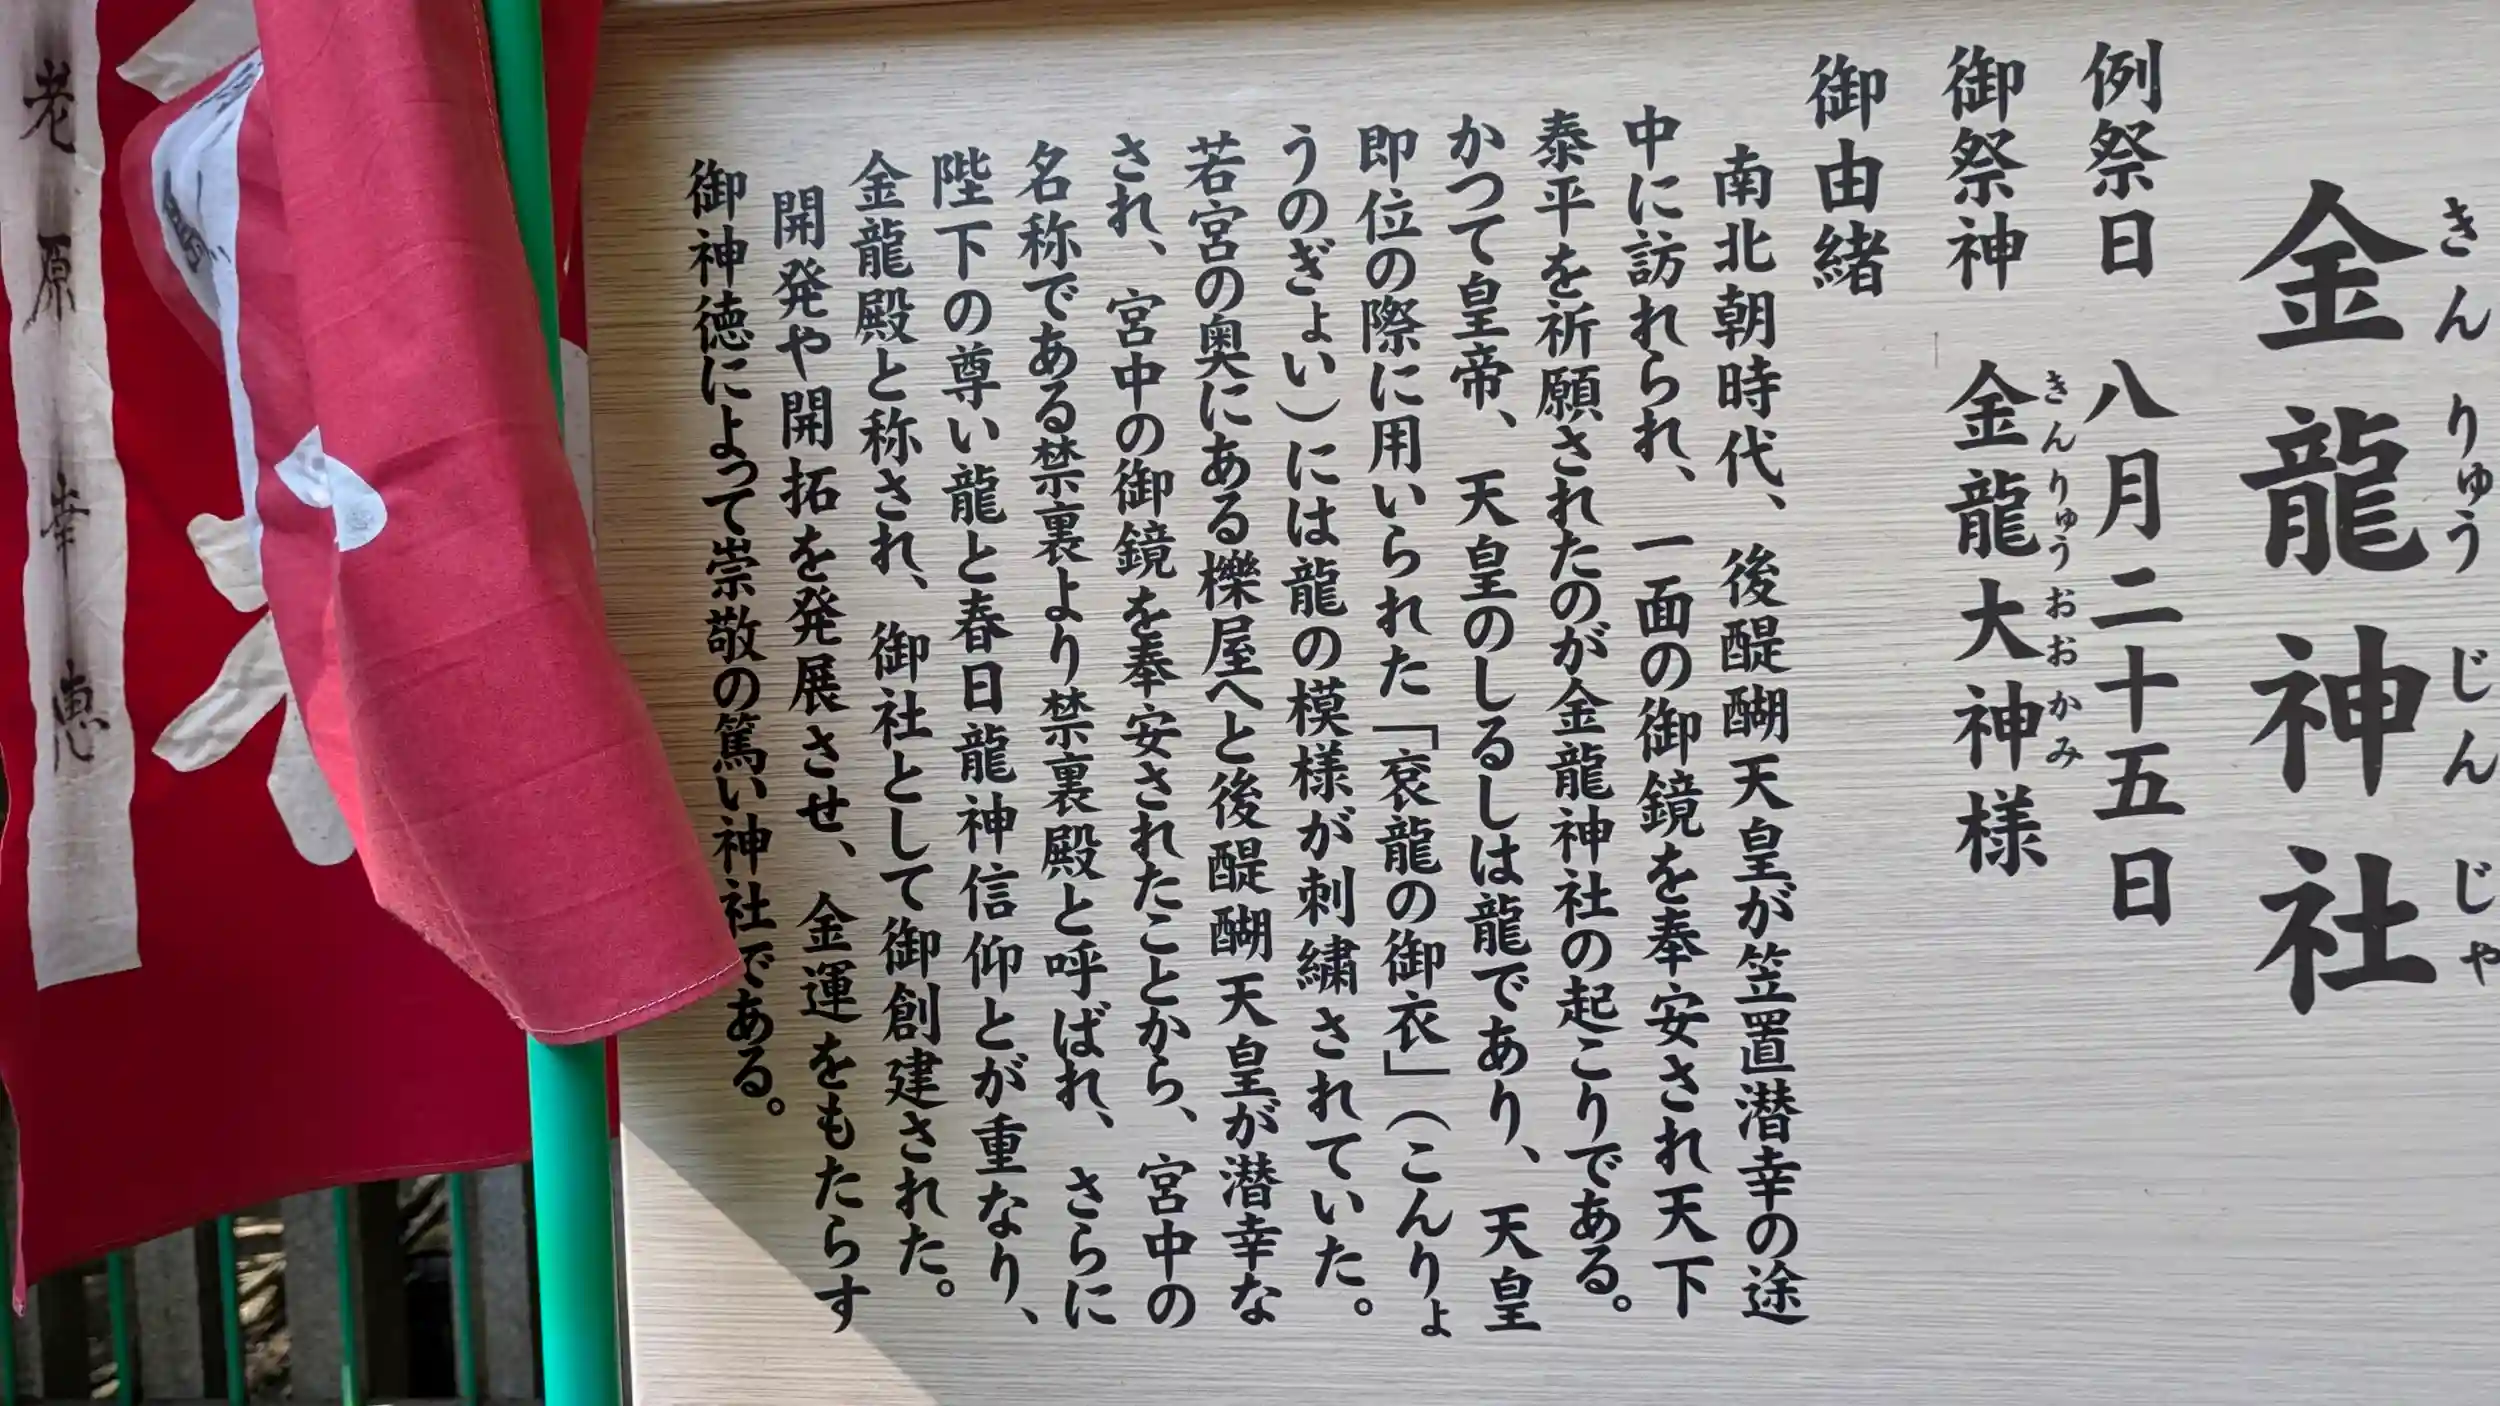 金龍神社
きんりゅうじんじゃ
例祭日 八月二十五日
御祭神 金龍大神様
きんりゅうおおかみ
御由緒
南北朝時代、後醍醐天皇が笠置潜幸の途
中に訪れられ、一面の御鏡を奉安され天下
泰平を祈願されたのが金龍神社の起こりである。
かつて皇帝、天皇のしるしは龍であり、天皇
即位の際に用いられた「袞龍の御衣」(こんりょ
うのぎょい)には龍の模様が刺繍されていた。
若宮の奥にある櫟屋へと後醍醐天皇が潜幸な
され、宮中の御鏡を奉安されたことから、宮中の
名称である禁裏より禁裏殿と呼ばれ、さらに
陛下の尊い龍と春日龍神信仰とが重なり、
金龍殿と称され、御社として御創建された。
開発や開拓を発展させ、金運をもたらす
御神徳によって崇敬の篤い神社である。
老原幸恵